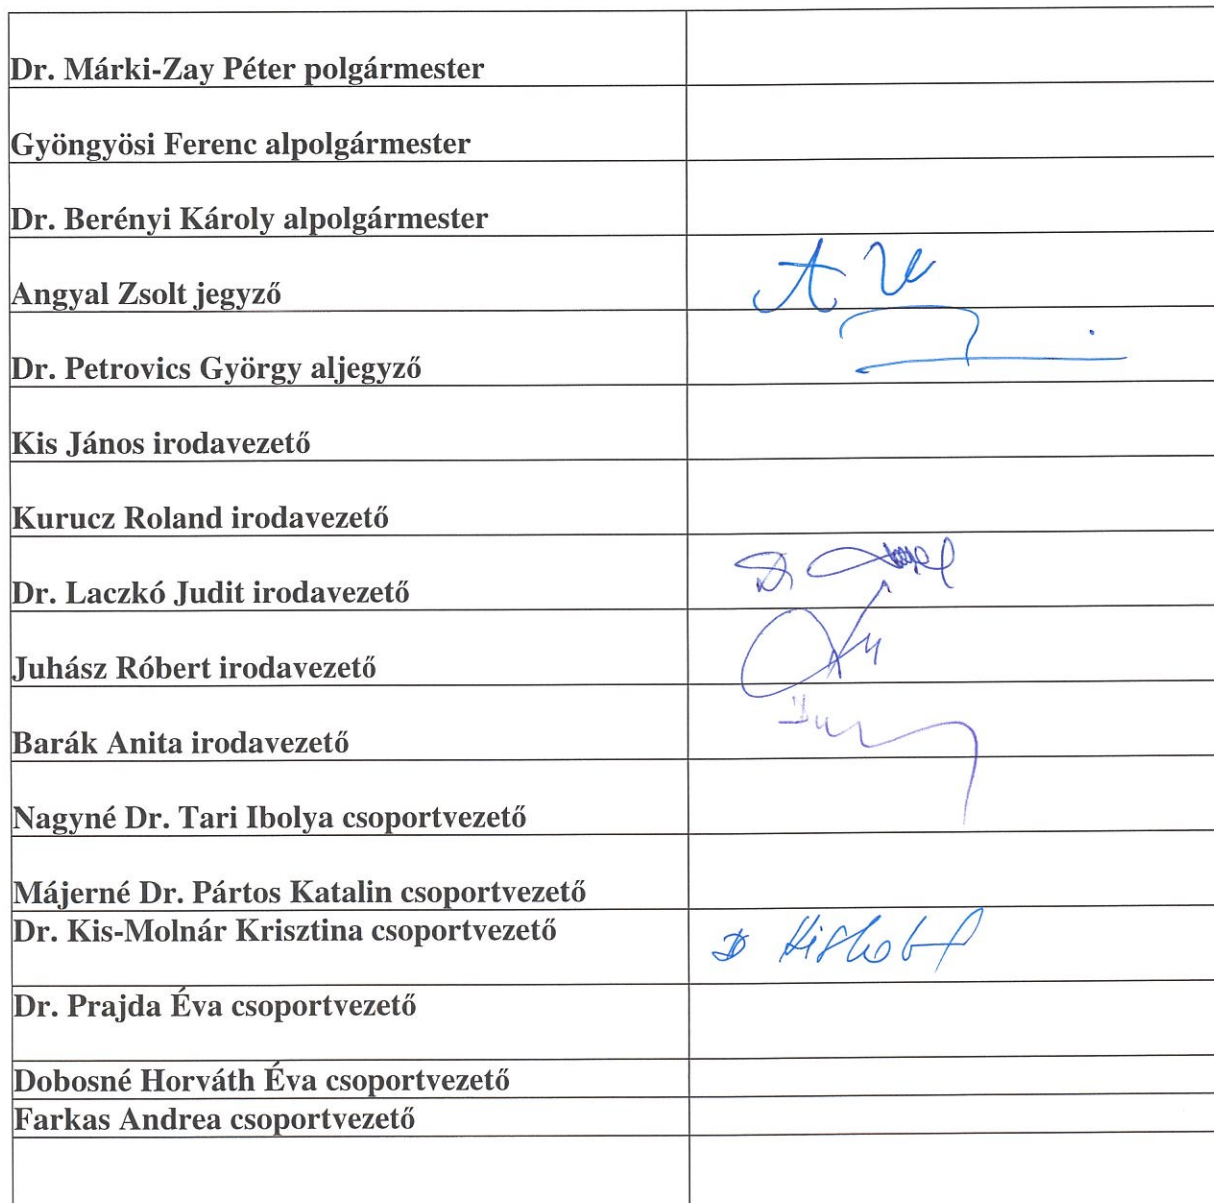 Dr. Márki-Zay Péter polgármester
Gyöngyösi Ferenc alpolgármester
Dr. Berényi Károly alpolgármester
Angyal Zsolt jegyző
Dr. Petrovics György aljegyző
Kis János irodavezető
Kurucz Roland irodavezető
Dr. Laczkó Judit irodavezető
Juhász Róbert irodavezető
Barák Anita irodavezető
Nagyné Dr. Tari Ibolya csoportvezető
Májerné Dr. Pártos Katalin csoportvezető
Dr. Kis-Molnár Krisztina csoportvezető
Dr. Prajda Éva csoportvezető
Dobosné Horváth Éva csoportvezető
Farkas Andrea csoportvezető